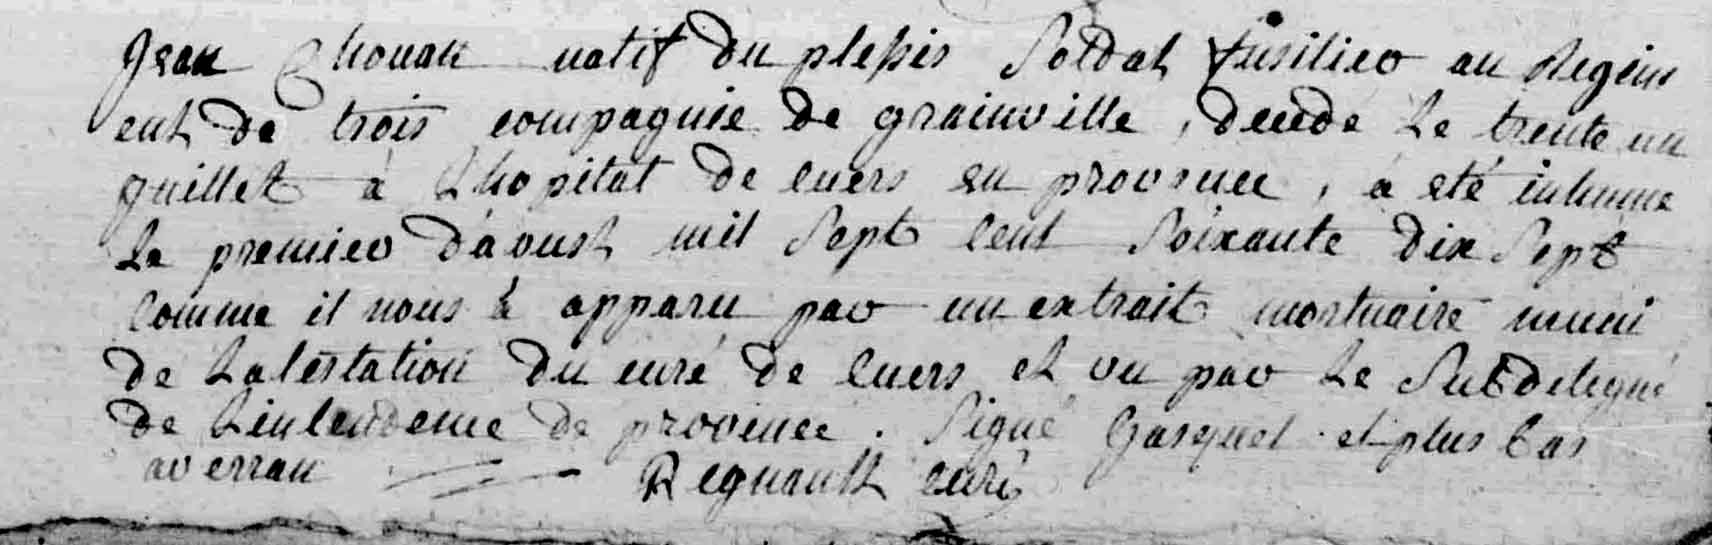 Jean Chouan natif du plessis Soldat fusilier au Regim
ent de trois compagnie de grainville, decede Le trente un
juillet à Lhopital de cuers en provence, a eté inhume
Le premier d'aoust mil Sept Cent Soixante dix Sept
Comme il nous à apparu par un extrait mortuaire muni
de Latestation du curé de Cuers et vu par Le Subdelegué
de Lintendence de provence. Signé Gasquet et plus bas
averran Regnault curé